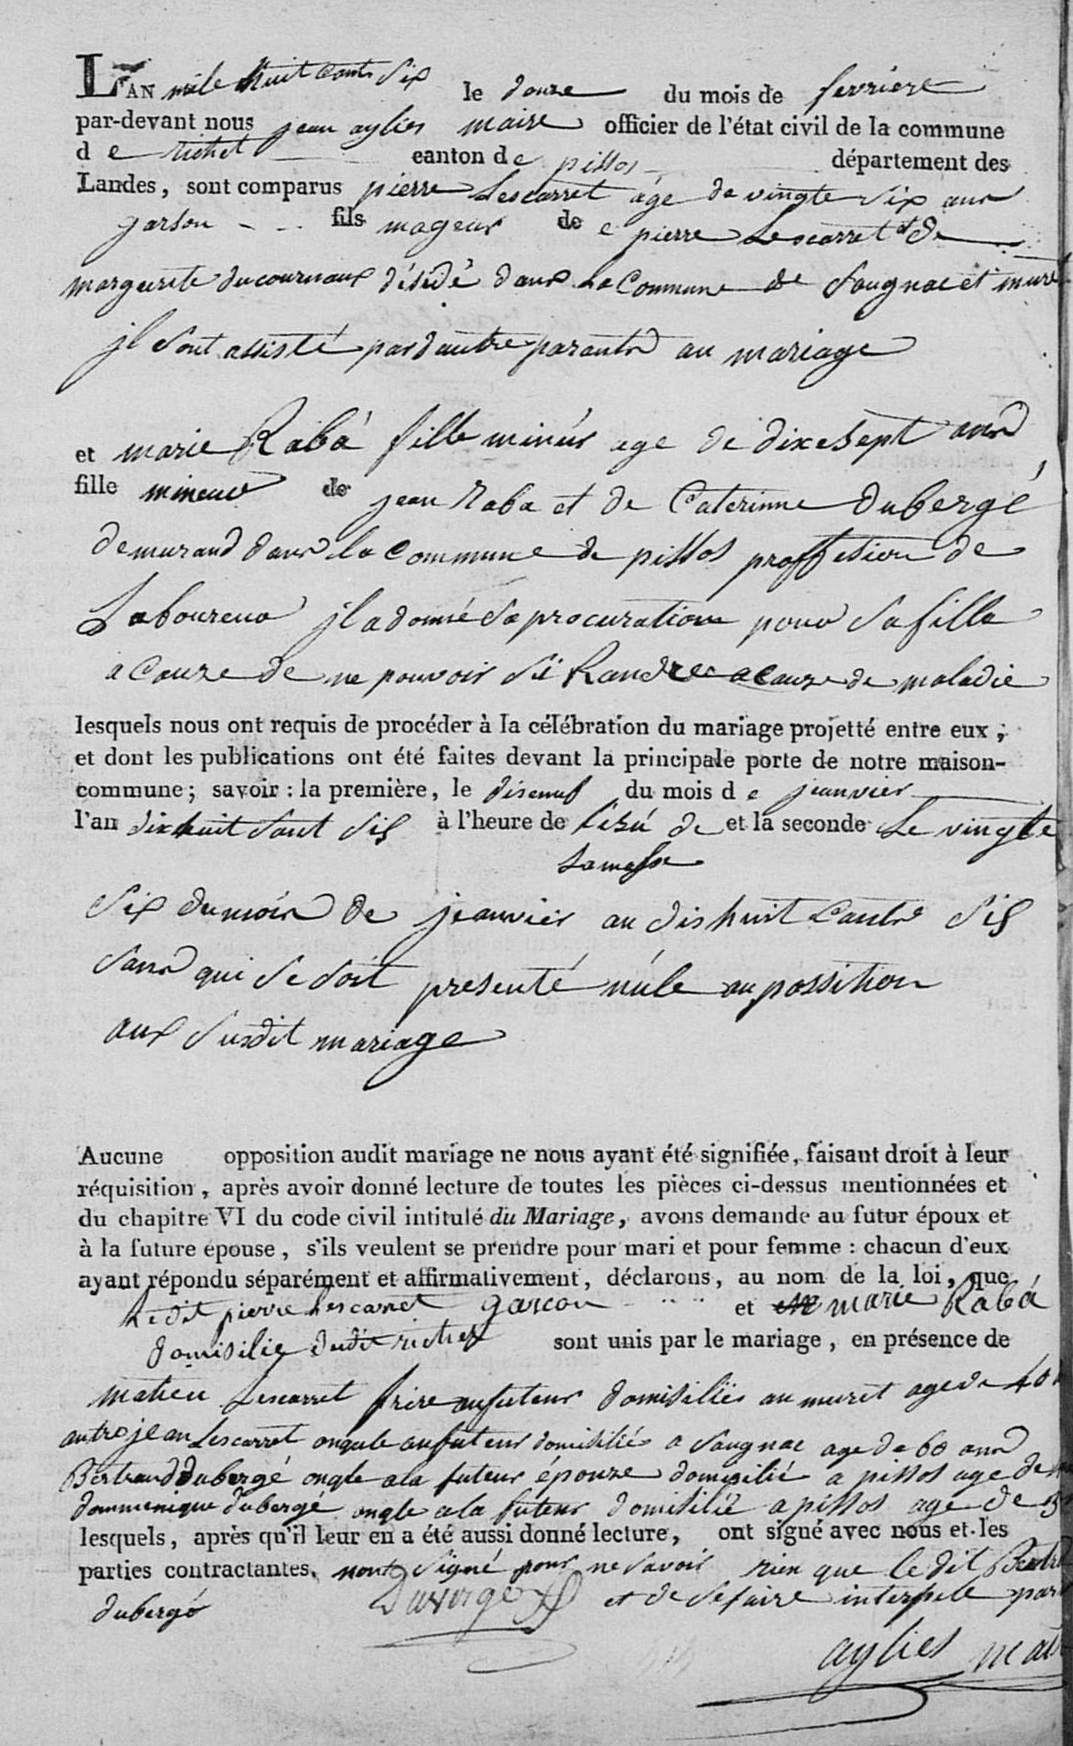 L'AN mile huit cents six le douze du mois de fevriere
par-devant nous jean aylies maire officier de l'état civil de la commune
d e richet canton de pissos département des
Landes, sont comparus pierre Lescarret agé de vingte six ans
garson fils mageur de e pierre Lescarret et de
marguerite ducournaux désédé dans la Commune de Saugnac et muret
jl sont assisté par dautre parants au mariage
et marie Rabá fille minúr age de dixesept ans
fille mineur de jean Raba et de Caterinne dubergé
demurand dans la Commune de pissos proffesion de
Laboureur jl a donné sa procuration pour sa fille
a Cauze de ne pouvoir si Randre a cauze de maladie
lesquels nous ont requis de procéder à la célébration du mariage projetté entre eux ;
et dont les publications ont été faites devant la principale porte de notre maison-
commune ; savoir : la première, le disenuf du mois d e jeanvier
l'an dixhuit sant sis à l'heure de lisú de et la seconde Le vingte
la messe
six du mois de jeanvier an dishuit Cants sis
sans qui se soit presenté núle oupossition
aux susdit mariage
Aucune opposition audit mariage ne nous ayant été signifiée, faisant droit à leur
réquisition, après avoir donné lecture de toutes les pièces ci-dessus mentionnées et
du chapitre VI du code civil intitulé du Mariage, avons demande au futur époux et
à la future épouse, s'ils veulent se prendre pour mari et pour femme : chacun d'eux
ayant répondu séparément et affirmativement, déclarons, au nom de la loi, que
Ledit pierre Lescarret garcon et marie Rabá
domisilie dudit richet sont unis par le mariage, en présence de
matieu Lescarret frire au futeur domisiliés au muret age de 40
autre jean Lescarret onqule au futeur domisilié a Saugnac age de 60 ans
Bertrand dubergé ongle a la futeur épouze domisilié a pissos age de
dommenique dubergé ongle a la futeur domisilié a pissos age de
lesquels, après qu'il leur en a été aussi donné lecture, ont signé avec nous et les
parties contractantes. nont signé pour ne savoir rien que le dit
dubergé Duvergé et de sefaire interpele par
aylies